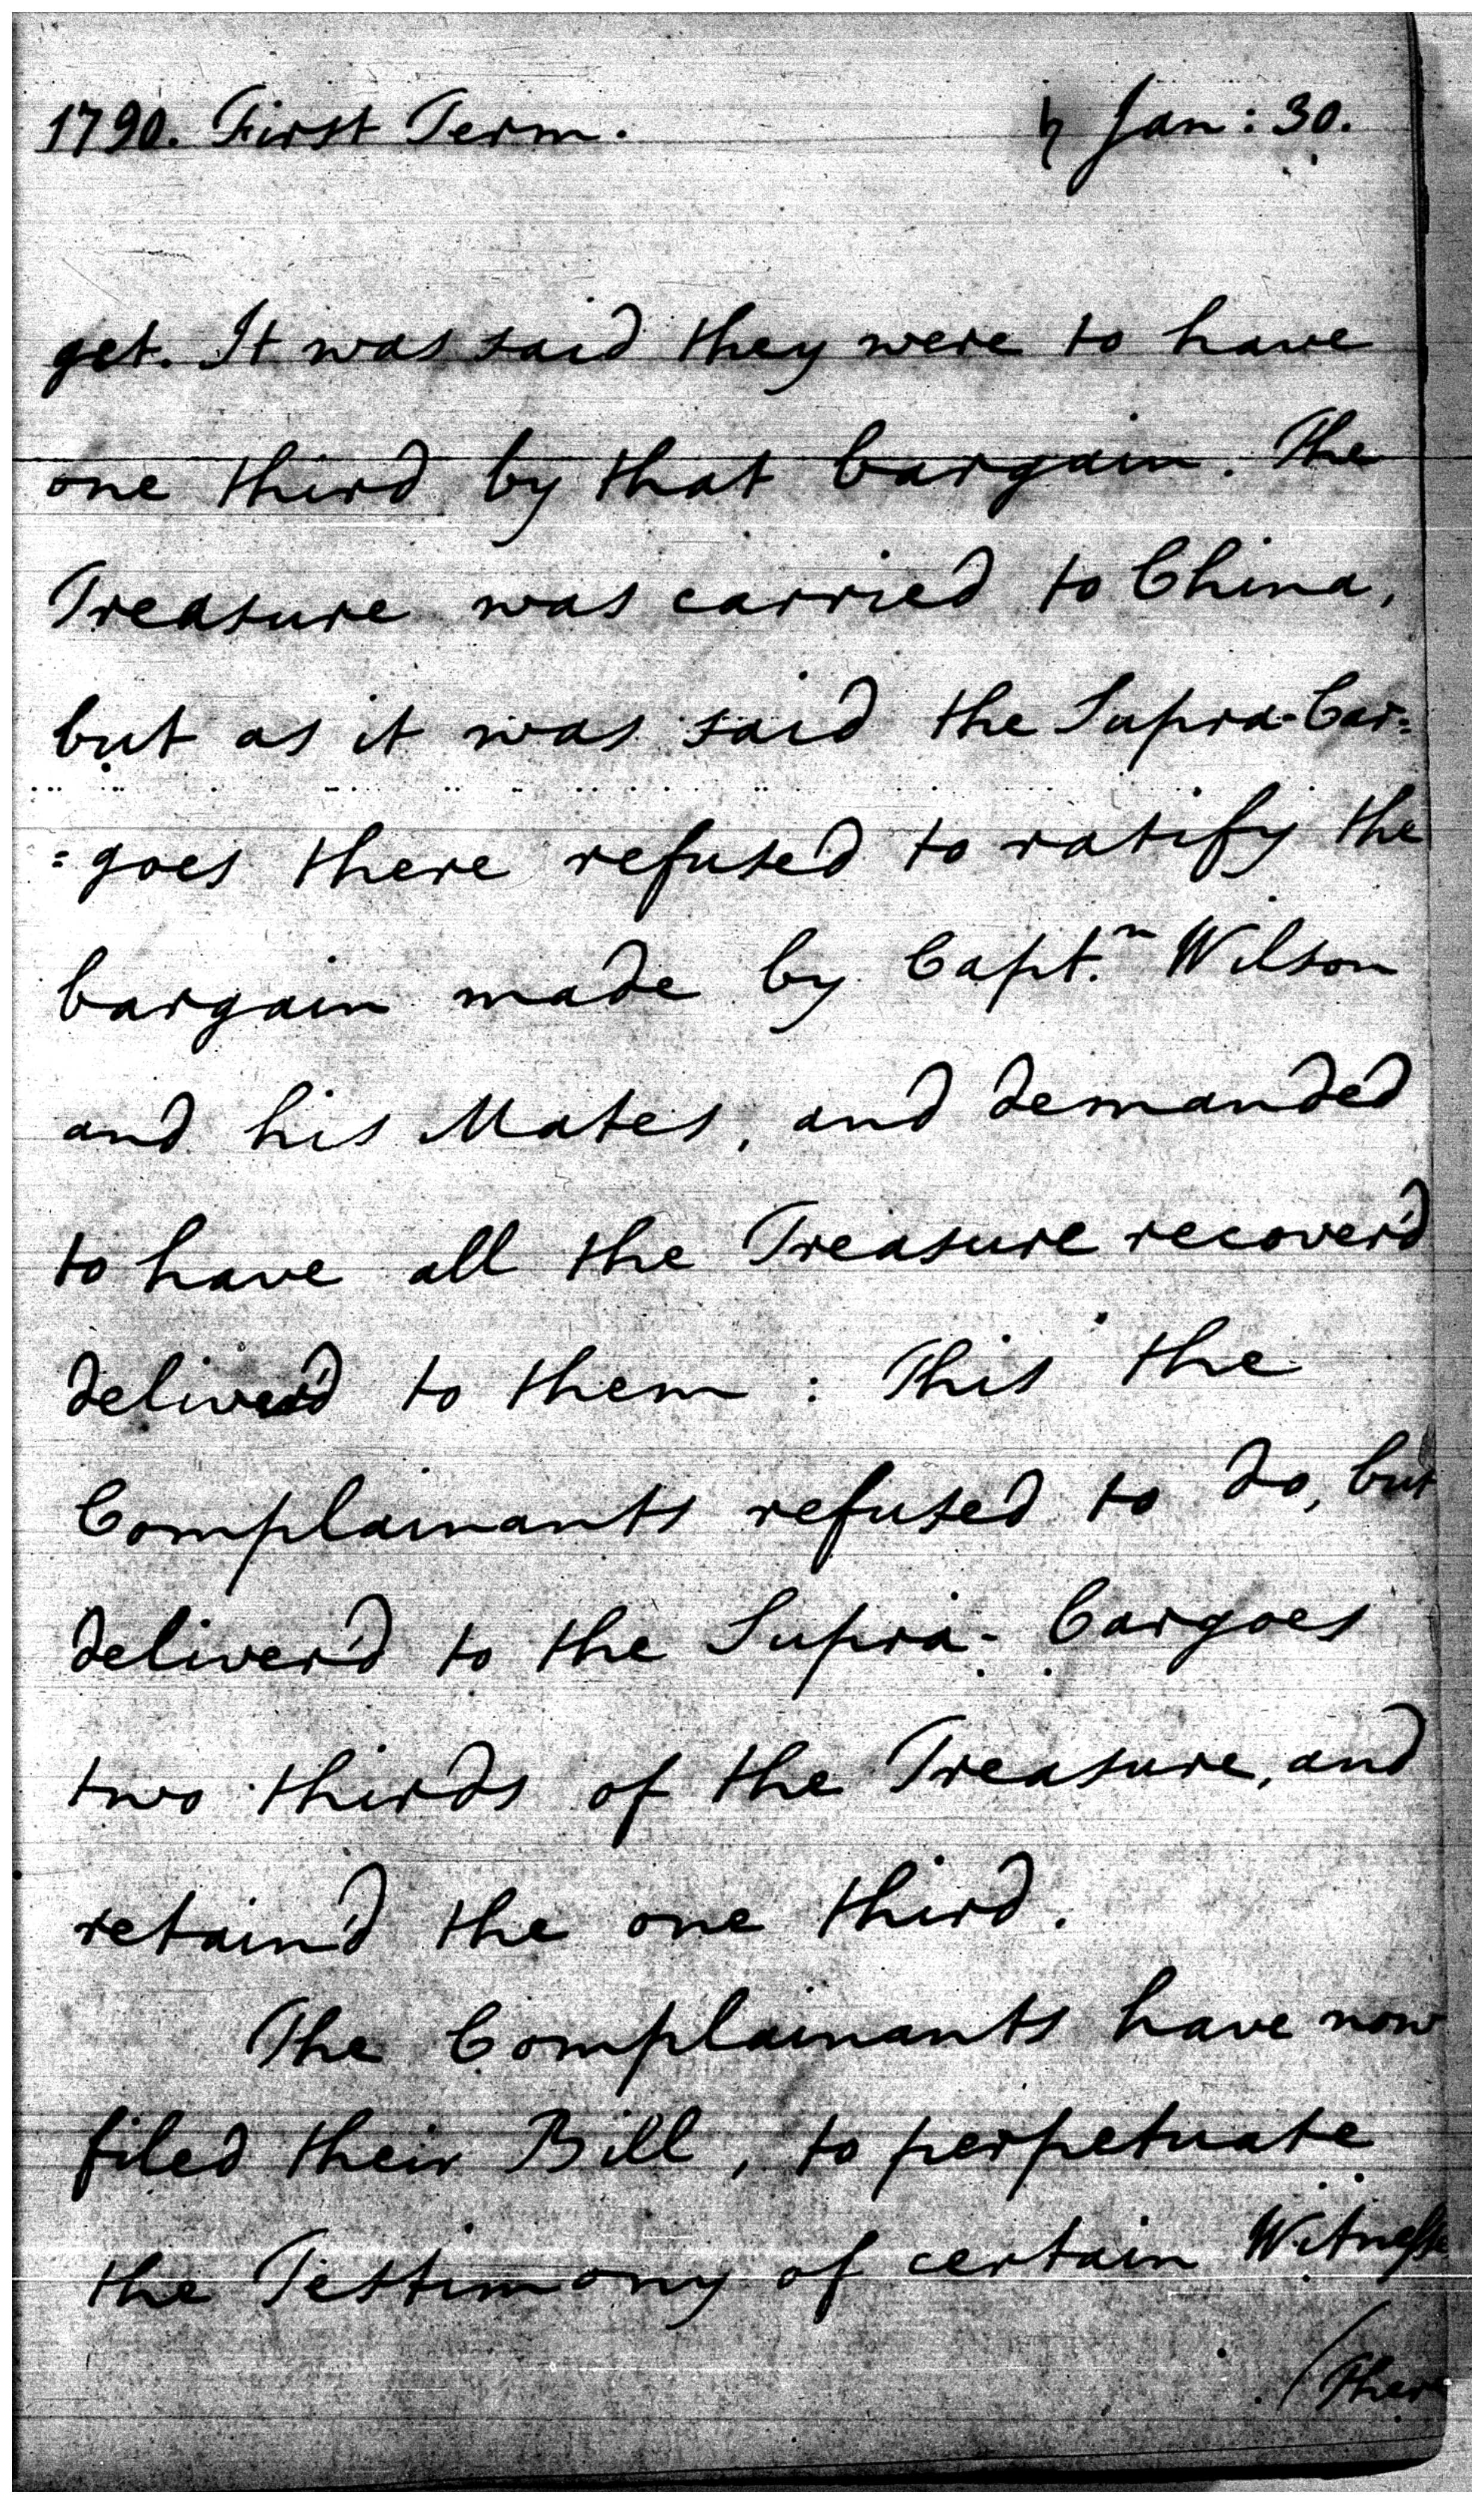 1790. First Term. ♄ Jan: 30.
get. It was said they were to have
one third by that bargain. The
Treasure was carried to China,
but as it was said the Supra-Car=
=goes there refused to ratify the
bargain made by Capt.n Wilson
and his Mates, and demanded
to have all the Treasure recover'd
deliver'd to them: This the
Complainants refused to do, but
deliver'd to the Supra-Cargoes
two thirds of the Treasure, and
retain'd the one third.
The Complainants have now
filed their Bill, to perpetuate
the Testimony of certain Witnesse
(There